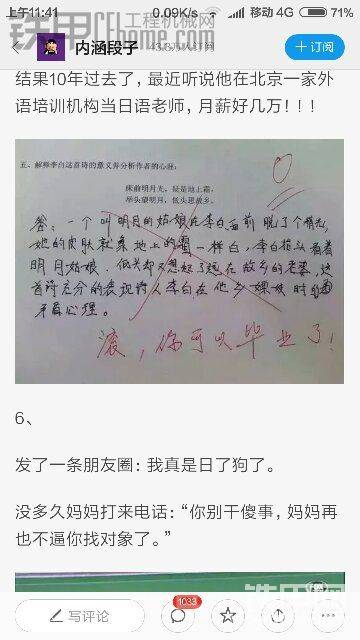 上午11:41
0.09K/s 移动 4G 71%
铁甲 工程机械网
内涵段子
+订阅
结果10年过去了，最近听说他在北京一家外
语培训机构当日语老师，月薪好几万！！！
五、解释李白这首诗的意义并分析作者的心理：
床前明月光，疑是地上霜。
举头望明月，低头思故乡。
答：一个叫明月的姑娘在李白面前脱了个精光，
她的皮肤就象地上的霜一样白，李白抬头看着
明月姑娘，低头却又想起了远在故乡的老婆，这
首诗充分的表现诗人李白在他乡嫖妓时的
矛盾心理。
0
滚，你可以毕业了！
6、
发了一条朋友圈：我真是日了狗了。
没多久妈妈打来电话：“你别干傻事，妈妈再
也不逼你找对象了。”
写评论
1033